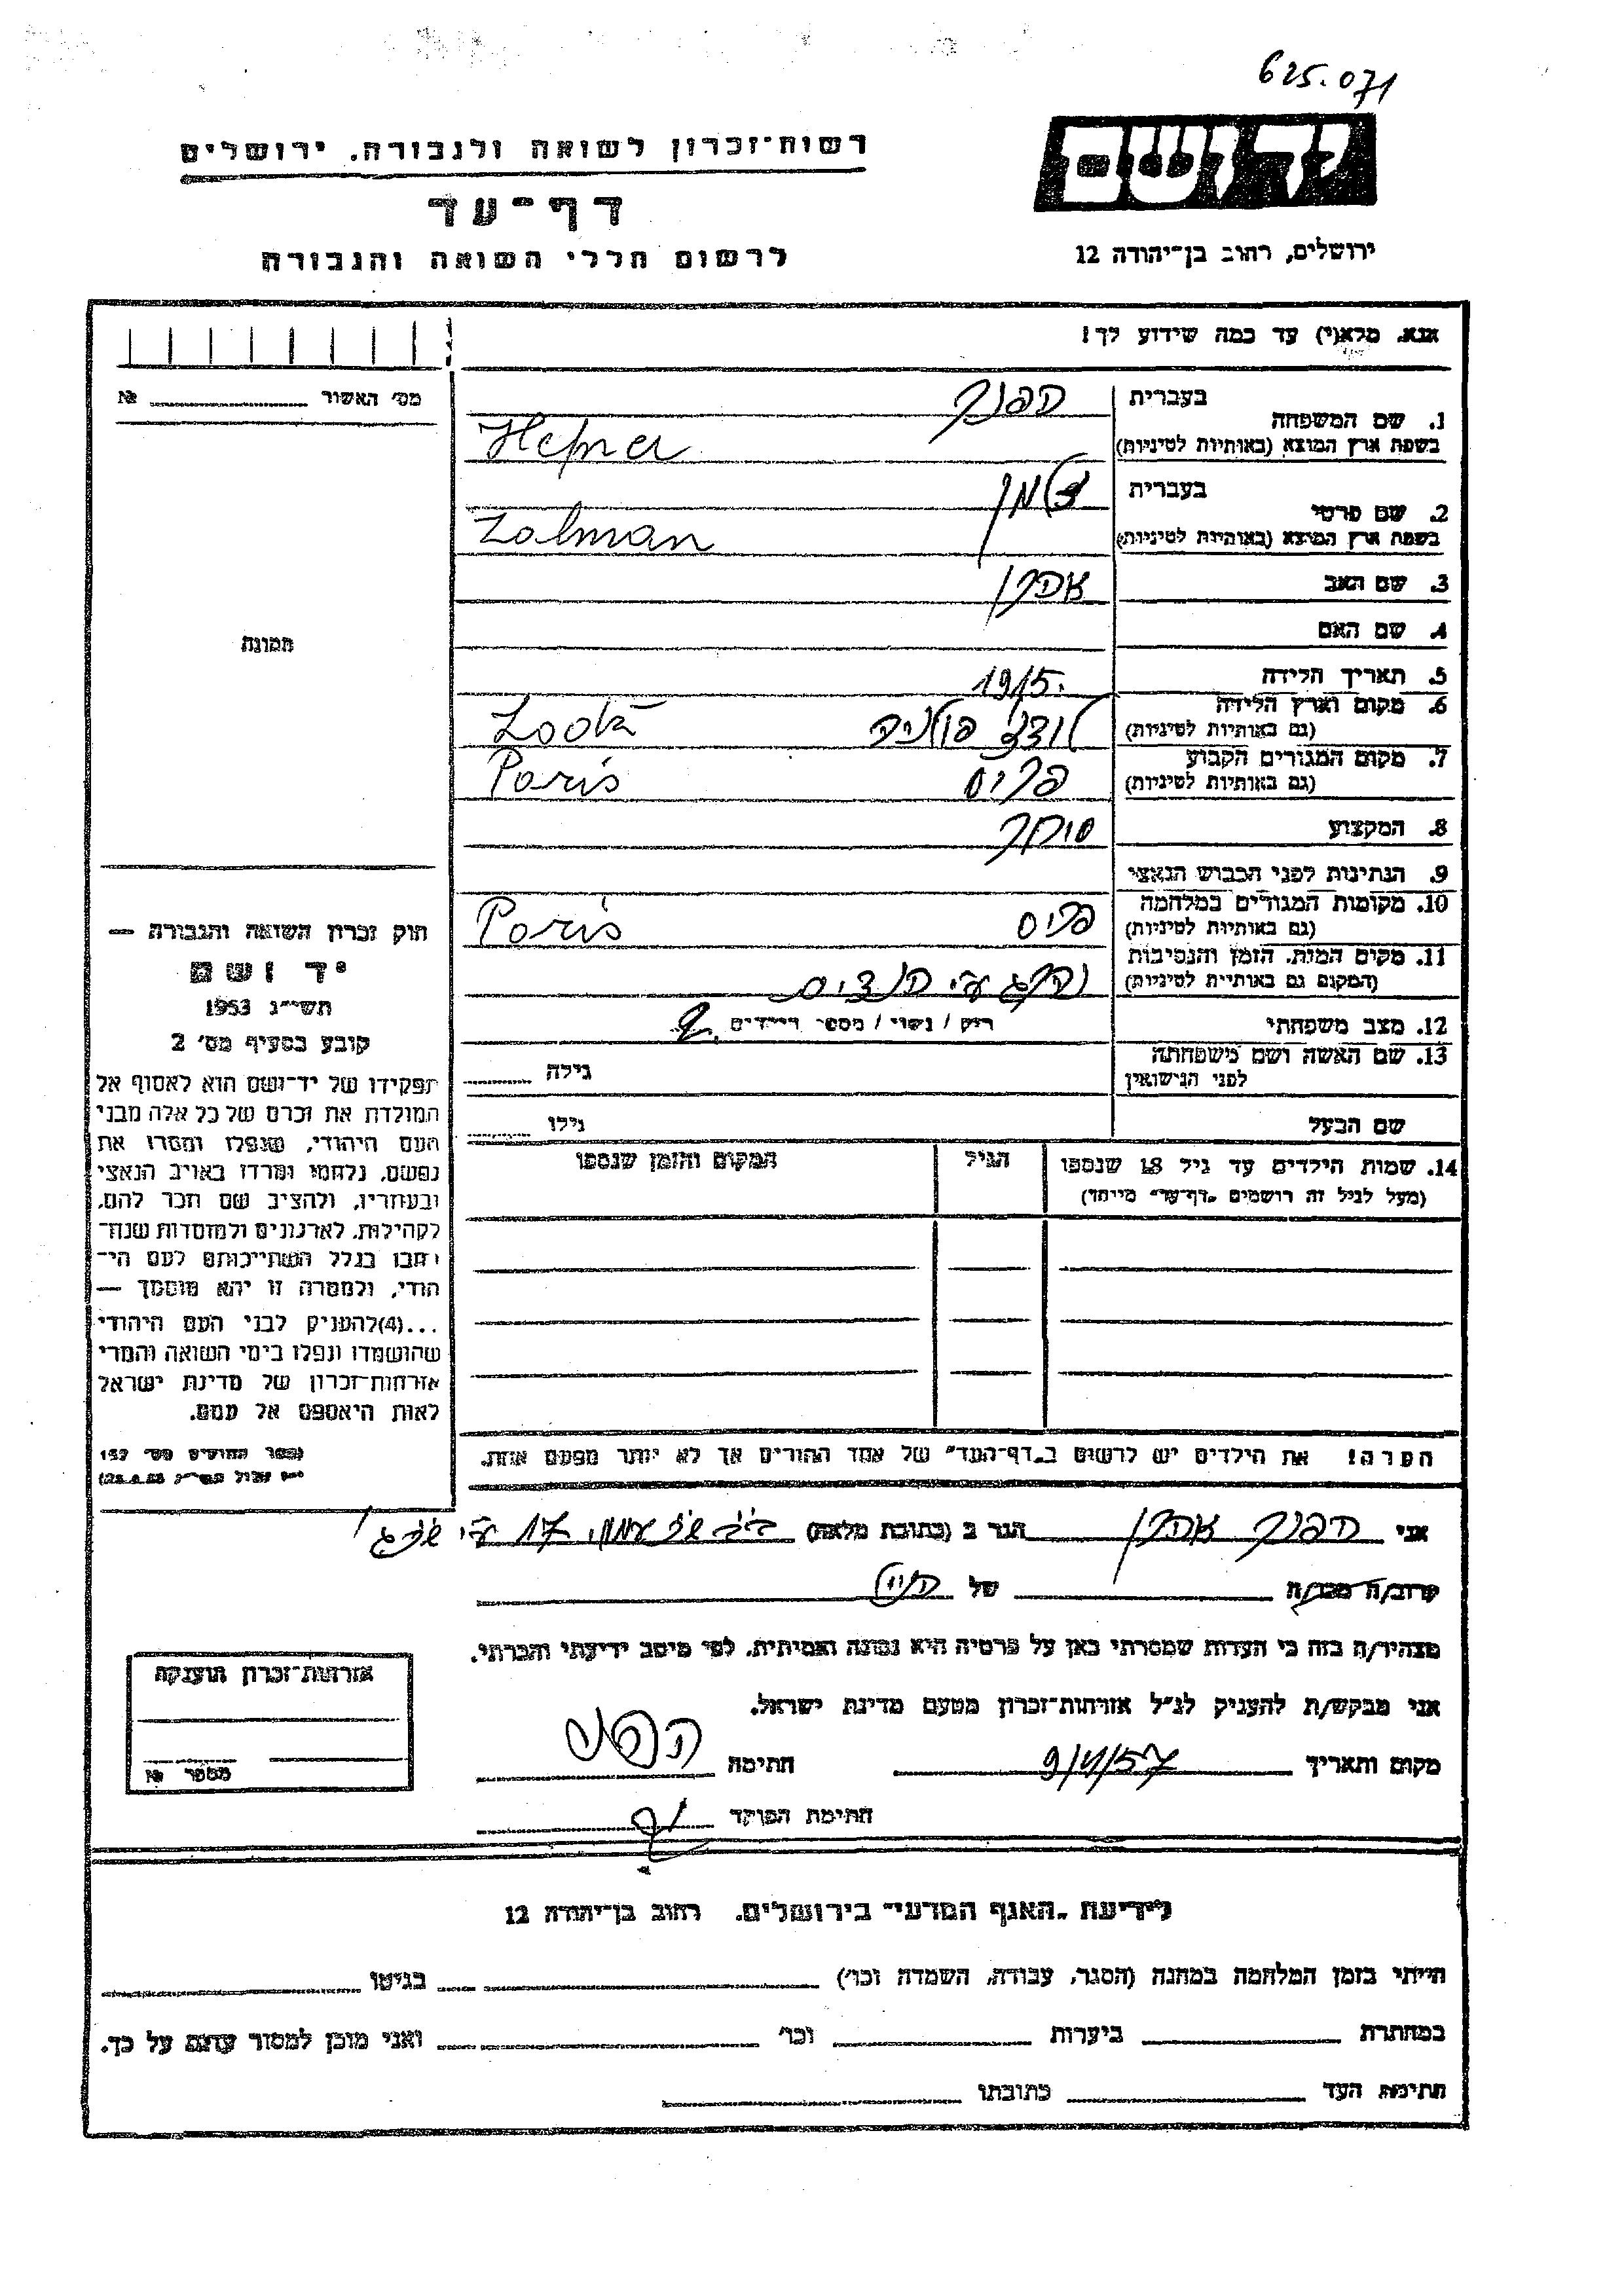 625.071
רשות־זכרון לשואה ולגבורה. ירושלים
יד ושם
דף־עד
ירושלים, רחוב בן־יהודה 12
לרשום חללי השואה והגבורה
אנא, מלא(י) עד כמה שידוע לך!
מס׳ האשור № 
1. שם המשפחה בעברית הפנר
בשפת ארץ המוצא (באותיות לטיניות) Hefner
2. שם פרטי בעברית זלמן
בשפת ארץ המוצא (באותיות לטיניות) Zalman
3. שם האב אהרן
4. שם האם
תמונה
5. תאריך הלידה 1915
6. מקום וארץ הלידה
(גם באותיות לטיניות) לודז פולניה
7. מקום המגורים הקבוע
(גם באותיות לטיניות) פריס Paris
8. המקצוע סוחר
9. הנתינות לפני הכבוש הנאצי
10. מקומות המגורים במלחמה
(גם באותיות לטיניות) פריס Paris
11. מקום המות, הזמן והנסיבות
(המקום גם באותיות לטיניות) נהרג ע״י הנצים
12. מצב משפחתי רוק / נשוי / מספר הילדים
13. שם האשה ושם משפחתה
לפני הנישואין גילה
שם הבעל גילו
14. שמות הילדים עד גיל 18 שנספו הגיל המקום והזמן שנספו
(מעל לגיל זה רושמים „דף־עד״ מייחד)
חוק זכרון השואה והגבורה —
יד ושם
תשי״ג 1953
קובע בסעיף מס׳ 2
תפקידו של יד־ושם הוא לאסוף אל
המולדת את זכרם של כל אלה מבני
העם היהודי, שנפלו ומסרו את
נפשם, נלחמו ומרדו באויב הנאצי
ובעוזריו, ולהציב שם וזכר להם,
לקהילות, לארגונים ולמוסדות שנח־
רבו בגלל השתייכותם לעם הי־
הודי, ולמטרה זו יהא מוסמך —
...(4)להעניק לבני העם היהודי
שהושמדו ונפלו בימי השואה והמרי
אזרחות־זכרון של מדינת ישראל
לאות היאספם אל עמם.
(ספר החוקים מס׳ 132
הערה! את הילדים יש לרשום ב„דף־העד״ של אחד ההורים אך לא יותר מפעם אחת.
אני הפנר אהרן הגר ב (כתובת מלאה) 17
קרוב/ה מכר/ה של
מצהיר/ה בזה כי העדות שמסרתי כאן על פרטיה היא נכונה ואמיתית, לפי מיטב ידיעתי והכרתי.
אני מבקש/ת להעניק לנ״ל אזרחות־זכרון מטעם מדינת ישראל.
מקום ותאריך חתימה
חתימת הפוקד
אזרחות־זכרון הוענקה
מספר №
לידיעת „האגף המדעי״ בירושלים, רחוב בן־יהודה 12
הייתי בזמן המלחמה במחנה (הסגר, עבודה, השמדה וכו׳) בגיטו
במחתרת ביערות וכו׳ ואני מוכן למסור עדות על כך.
חתימת העד כתובתו